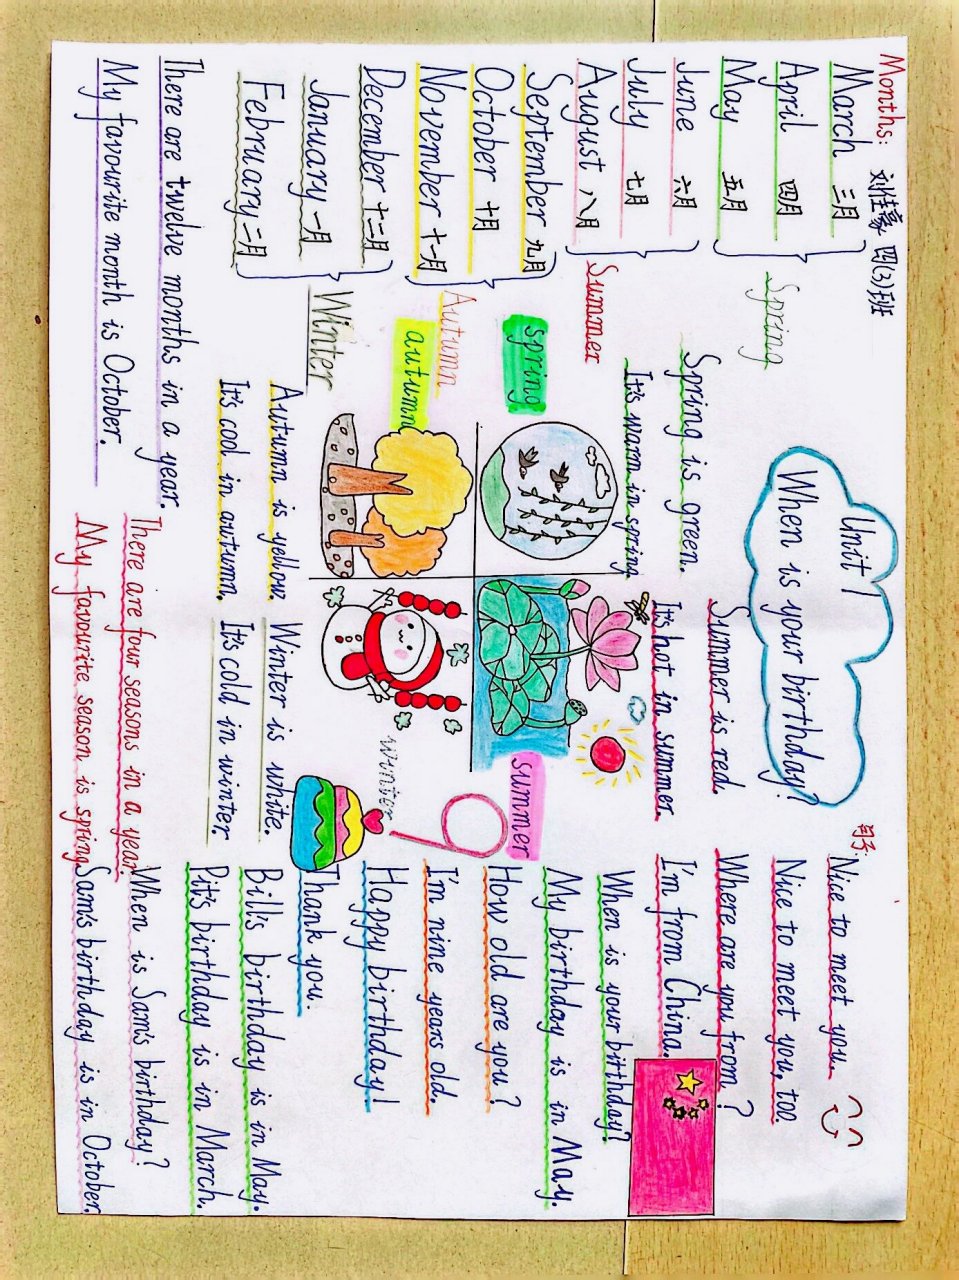 Months:
刘佳豪 四(3)班
March 三月
April 四月
May 五月
June 六月
July 七月
August 八月
September 九月
October 十月
November 十一月
December 十二月
January 一月
February 二月
Spring
Summer
Autumn
Winter
There are twelve months in a year.
My favourite month is October.
Unit 1
When is your birthday?
Spring is green.
It's warm in spring.
Summer is red.
It's hot in summer.
spring
autumn
summer
winter
Autumn is yellow.
It's cool in autumn.
Winter is white.
It's cold in winter.
There are four seasons in a year.
My favourite season is spring.
句子:
Nice to meet you.
Nice to meet you, too.
Where are you from?
I'm from China.
When is your birthday?
My birthday is in May.
How old are you?
I'm nine years old.
Happy birthday!
Thank you.
Bill's birthday is in May.
Pit's birthday is in March.
When is Sam's birthday?
Sam's birthday is in October.